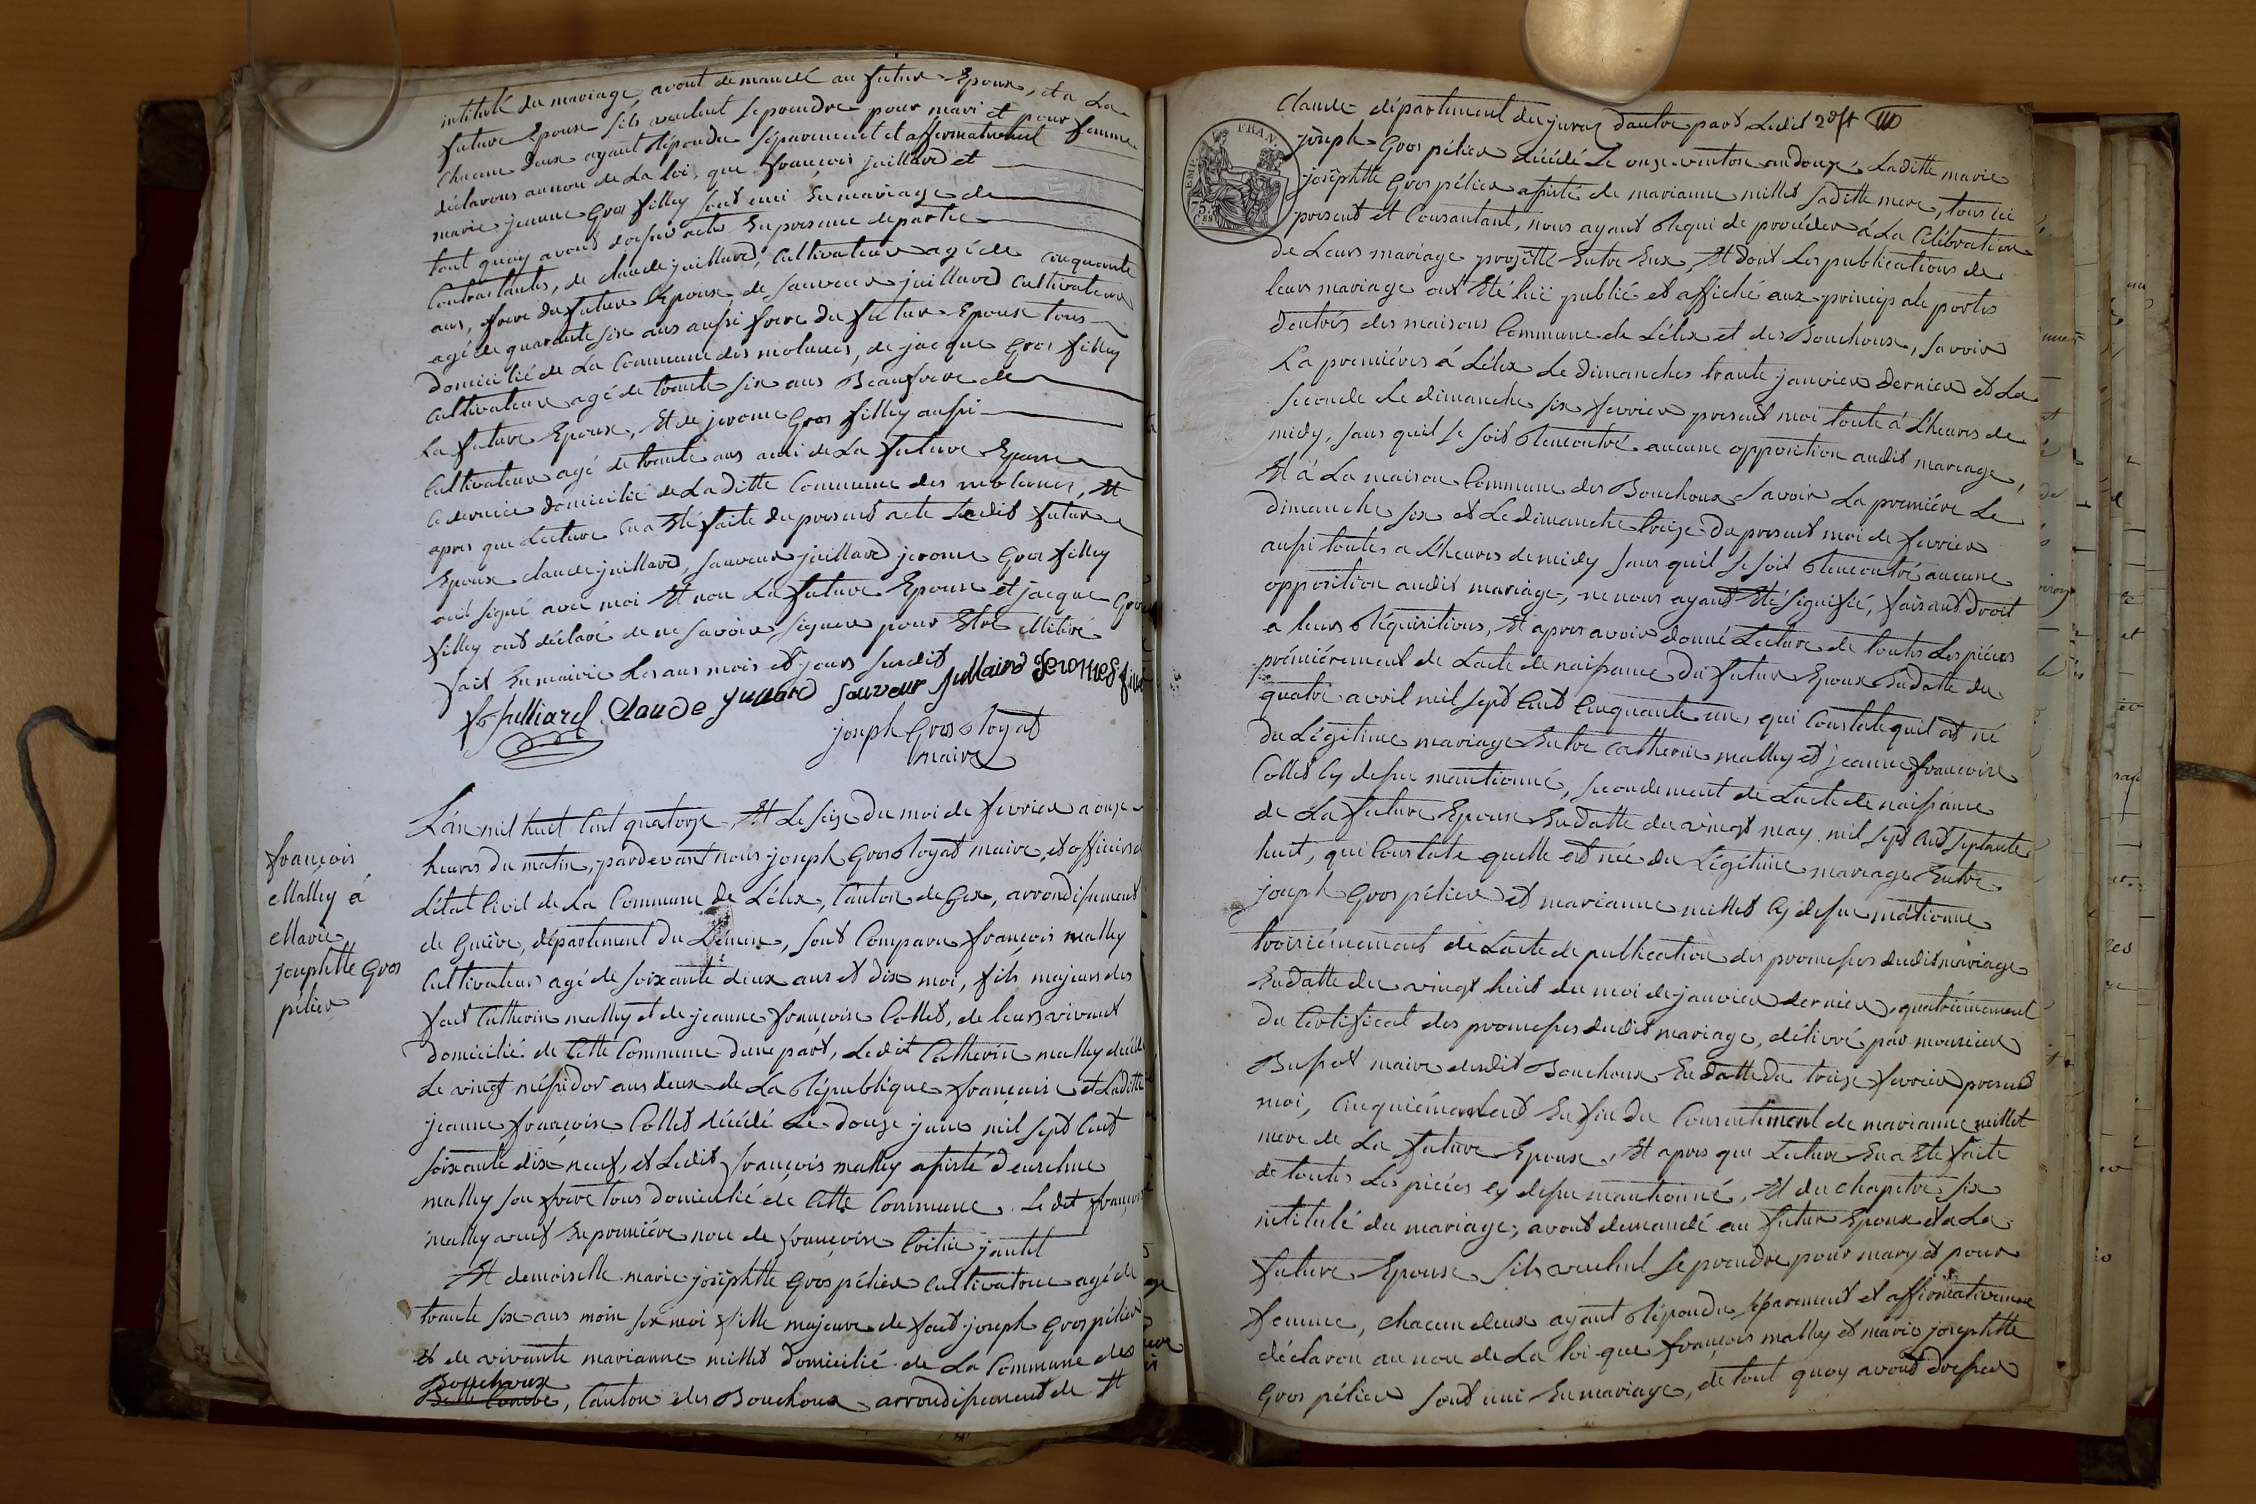 intitulé du mariage, avont demandé au futur Epoux, et a La
future Epouse s'ils veulent se prendre pour mari et pour femme
chacun deux ayant répondu séparement et affirmativement
déclarons au nom de La loi, que françois juillard et
marie jeanne Gros filley sont uni en mariage de
tout quoy avons dressé acte En presence de partie
Contractantes, de claude juillard, Cultivateur agé de cinquante
ans, frere du futur Epoux, de sauveur juillard Cultivateur
agé de quarante six ans aussi frere du futur Epoux tous
domicilié de La Commune des molunes, de jacque Gros filley
Cultivateur agé de trante six ans Beaufrere de
La future Epouse, Et de jerome Gros filley aussi
Cultivateur agé de trante ans ami de La future Epouse
ce dernier domicilié de Laditte Commune des molunes, Et
apres que Lecture en a Eté faite du present acte Ledit futur
Epoux claude juillard, sauveur juillard jerome Gros filley
ont signé avec moi Et non La future Epouse et jacque Gros
filley ont déclaré de ne savoir signer pour Etre illitéré
fait En mairie Les ans mois et jours susdit
fs juilliard Claude juillard sauveur Jullaird Jerome G fille
joseph Gros Royat
maire
françois
Malley á
Marie
josephtte Gros
pélier
L'an mil huit Cent quatorze, Et Le seize du moi de fevrier a onze
heures du matin, pardevant nous joseph Gros Royat maire, et officier d
L'état Civil de La Commune de Lélex, Canton de Gex, arrondissement
de Genève, département du Léman, sont Comparu françois malley
Cultivateur agé de soixante deux ans et dix moi, fils majeur des
feut Catherin malley et de jeanne françoise Collet, de leurs vivant
domicilié de Cette Commune d'une part, Ledit Catherin malley décédé
Le vingt méssidor ans deux de La République française et Laditte
jeanne françoise Collet décédé Le douze juin mil sept Cent
soixante dix neuf, et Ledit françois malley assisté d'enselme
malley son frere tous domicilié de Cette Commune. Le dit françois
malley veuf En premiére nou de françoise
Et demoiselle marie josephtte Gros pélier Cultivatrice agé de
trante six ans moin six moi fille majeure de feut joseph Gros pélier
et de vivante marianne millet domicilié de La Commune des
Bouchoux
Belle Combe, Canton des Bouchoux arrondissement de St
Claude département du jura, d'autre part Ledit
joseph Gros pélier décédé Le onze ventose an douze, Laditte marie
josephtte Gros pélier assisté de marianne millet saditte mere, tous ici
present et Consantant, nous ayant Requi de proceder á La Célébration
de Leurs mariage projetté Entre Eux, Et dont Les publications de
leurs mariage ont Eté lüe publié et affiché aux principale portes
d'entrés des maisons Commune de Lélex et des Bouchoux, savoir
La premiéres á Lélex Le dimanches trante janvier dernier et La
seconde Le dimanche six fevrier present moi toute á L'heures de
midy, sans quil se soit Rencontré aucune opposition audit mariage,
Et á La maison Commune des Bouchoux savoir La premiére Le
dimanche six et Le dimanche treize du present moi de fevrier
aussi toutes a L'heures de midy sans quil se soit Rencontré aucune
opposition audit mariage, ne nous ayant Eté signifié, faisand droit
a leurs Réquisitions, Et apres avoir donné Lecture de toutes Les piéces
prémiérement de L'acte de naissance du futur Epoux En datte du
quatre avril mil sept Cent Cinquante un, qui Constate quil est né
du Légitime mariage Entre catherin malley et jeanne françoise
Collet cy dessu mantionné, secondement de L'acte de naissance
de La future Epouse En datte du vingt may mil sept Cent septante
huit, qui Constate quelle est née du Légitime mariage Entre
joseph Gros pélier et marianne millet Cy dessu mationne
troisiémement de L'acte de publication des promesses dudit mariage
En datte du vingt huit du moi de janvier dernier, quatriémement
du Certificat des promesses dudit mariage, délivré par monsieur
maire desdit Bouchoux En datte du treize fevrier present
moi, Cinquiémement En fin du Consentiment de marianne millet
mere de La future Epouse, Et apres que Lecture En a Eté faite
de toutes Les piéces cy dessu mantionné, Et du chapitre six
intitulé du mariage, avont demandé au futur Epoux et a La
future Epouse s'ils veulent se prendre pour mary et pour
femme, chacun deux ayant Répondu séparement et affirmativement
déclaron au nom de La loi que françois malley et marie josephtte
Gros pélier sont uni En mariage, de tout quoy avont dressé